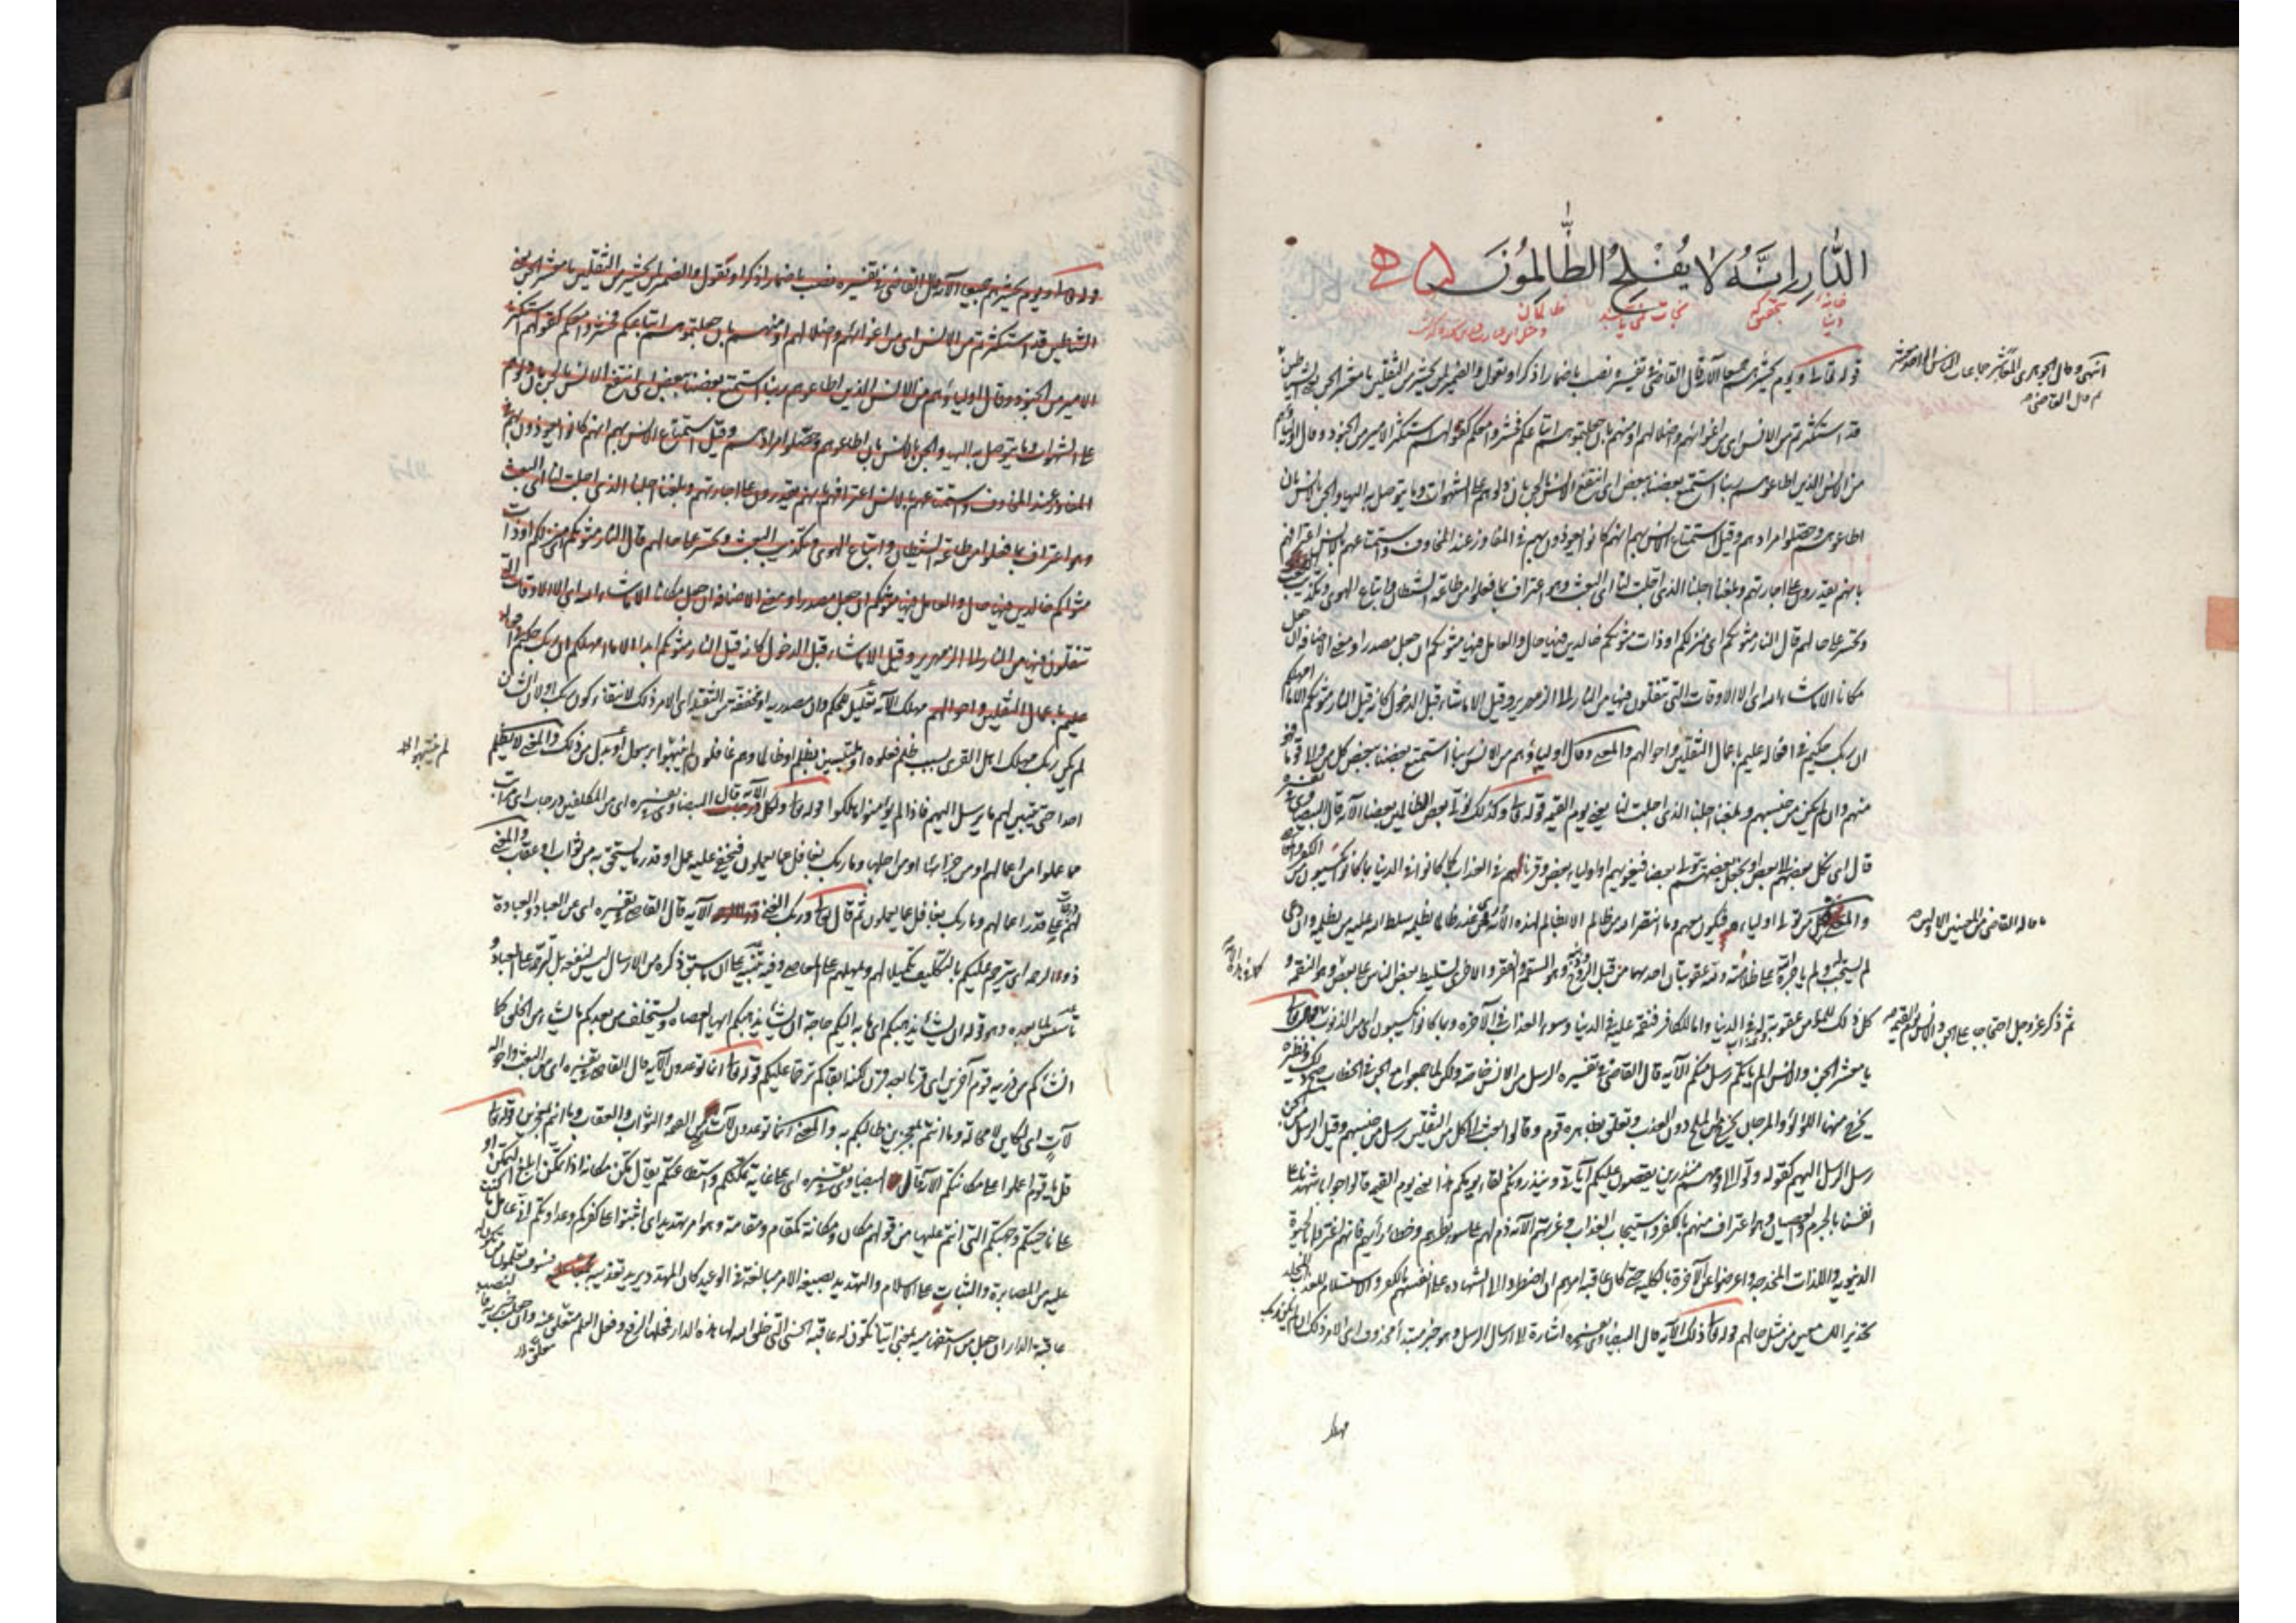 الدَّارِ اِنَّهُ لَا يُفْلِحُ الظَّالِمُونَ
خانهٔ دنیا بتحقیق که نجات نمی یابند ظالمان
قوله تعالى ويوم يحشرهم جميعا الآية قال القاضى فى تفسيره نصب باضمار اذكر او نقول والضمير لمن يحشر من الثقلين يا معشر الجن يعنى الشياطين
قد استكثرتم من الانس اى من اغوائهم واضلالهم او منهم بان جعلتموهم اتباعكم فحشروا معكم كقولهم استكثر الامير من الجنود وقال اولياؤهم
من الانس الذين اطاعوهم ربنا استمتع بعضنا ببعض اى انتفع الانس بالجن بان دلوهم على الشهوات وما يتوصل به اليها والجن بالانس بان
اطاعوهم وحصلوا مرادهم وقيل استمتاع الانس بهم انهم كانوا يعوذون بهم فى المفاوز عند المخاوف واستمتاعهم بالانس اعترافهم
بانهم يقدرون على اجارتهم وبلغنا اجلنا الذى اجلت لنا اى البعث وهو اعتراف بما فعلوا من طاعة الشيطان واتباع الهوى وتكذيب البعث
وتحسر على حالهم قال النار مثويكم اى منزلكم او ذات مثويكم خالدين فيها حال والعامل فيها مثويكم ان جعل مصدرا ومعنى الاضافة ان جعل
مكانا الا ما شاء الله اى الا الاوقات التى تنقلون فيها من النار الى الزمهرير وقيل الا ما شاء قبل الدخول كانه قيل النار مثويكم ابدا الا ما امهلكم
ان ربك حكيم فى افعاله عليم باعمال الثقلين واحوالهم والمعنى وقال اولياؤهم من الانس ربنا استمتع بعضنا ببعض
منهم وان لم يكن من جنسهم وبلغنا اجلنا الذى اجلت لنا يعنى يوم القيمة قوله تعالى وكذلك نولى بعض الظالمين بعضا الآية قال البيضاوى فى تفسيره
قال اى نكل بعضهم الى بعض او نجعل بعضهم يتولى بعضا فيغويهم او اولياء بعض وقرناءهم فى العذاب كما كانوا فى الدنيا بما كانوا يكسبون من الكفر والمعاصى
كل ذلك للمؤمن عقوبة له فى الدنيا واما للكافر فنقمة عليه فى الدنيا وسوء العذاب فى الآخرة وبما كانوا يكسبون اى من الذنوب قوله تعالى
يا معشر الجن والانس الم ياتكم رسل منكم الآية قال القاضى فى تفسيره الرسل من الانس خاصة ولكن لما جمعوا مع الجن فى الخطاب صح ذلك ونظيره
يخرج منهما اللؤلؤ والمرجان والمرجان يخرج من الملح دون العذب وتعلق بظاهره قوم وقالوا بعث الى كل من الثقلين رسل من جنسهم وقيل الرسل من الجن
رسل الرسل اليهم كقوله ولوا الى قومهم منذرين يقصون عليكم آياتى وينذرونكم لقاء يومكم هذا يعنى يوم القيمة قالوا جوابا شهدنا على
انفسنا بالجرم والعصيان وهو اعتراف منهم بالكفر واستيجاب العذاب وغرتهم الآية ذم لهم على سوء نظرهم وخطاء رأيهم فانهم اغتروا بالحيوة
الدنيوية واللذات المخدجة واعرضوا عن الآخرة بالكلية حتى كان عاقبة امرهم ان اضطروا الى الشهادة على انفسهم بالكفر والاستسلام للعذاب المخلد
تحذيرا للسامعين من مثل حالهم قوله تعالى ذلك الآية قال البيضاوى فى تفسيره اشارة الى ارسال الرسل وهو خبر مبتدأ محذوف اى الامر ذلك ان لم يكن ربك
انتهى وقال الجوهرى المعاشر جماعات الناس الواحد معشر
ثم قال القاضى
ما قاله القاضى من المعنيين الاولين
ثم ذكر عز وجل احتجاجه على الجن والانس يوم القيمة
مهلك
قوله تعالى ويوم يحشرهم جميعا الآية قال القاضى فى تفسيره نصب باضمار اذكر او نقول والضمير لمن يحشر من الثقلين يا معشر الجن يعنى
الشياطين قد استكثرتم من الانس اى من اغوائهم واضلالهم او منهم بان جعلتموهم اتباعكم فحشروا معكم كقولهم استكثر
الامير من الجنود وقال اولياؤهم من الانس الذين اطاعوهم ربنا استمتع بعضنا ببعض اى انتفع الانس بالجن بان دلوهم
على الشهوات وما يتوصل به اليها والجن بالانس بان اطاعوهم وحصلوا مرادهم وقيل استمتاع الانس بهم انهم كانوا يعوذون بهم
فى المفاوز عند المخاوف واستمتاعهم بالانس اعترافهم بانهم يقدرون على اجارتهم وبلغنا اجلنا الذى اجلت لنا اى البعث
وهو اعتراف بما فعلوا من طاعة الشيطان واتباع الهوى وتكذيب البعث وتحسر على حالهم قال النار مثويكم اى منزلكم او ذات
مثواكم خالدين فيها حال والعامل فيها مثويكم ان جعل مصدرا ومعنى الاضافة ان جعل مكانا الا ما شاء الله اى الا الاوقات التى
تنقلون فيها من النار الى الزمهرير وقيل الا ما شاء قبل الدخول كانه قيل النار مثويكم ابدا الا ما امهلكم ان ربك حكيم فى افعاله
عليم باعمال الثقلين واحوالهم مهلك الآية تعليل للحكم وان مصدرية او مخففة من الثقيلة اى الامر ذلك لانتفاء كون ربك او لان الشان
لم يكن ربك مهلك اهل القرى بسبب ظلم فعلوه او ملتبسين بظلم او ظالما وهم غافلون لم ينبهوا برسول او بدل من ذلك والمعنى لا يظلم
احدا حتى يتبين لهم ما يرسل اليهم فاذا لم يؤمنوا اهلكوا قوله تعالى ولكل درجات الآية قال البيضاوى فى تفسيره اى من المكلفين درجات اى مراتب
مما عملوا من اعمالهم او من جزائها او من اجلها وما ربك بغافل عما يعملون فيخفى عليه عمل او قدر ما يستحق به من ثواب او عقاب والمعنى
لهم درجات على قدر اعمالهم وما ربك بغافل عما يعملون ثم قال تعالى وربك الغنى الآية قال القاضى فى تفسيره اى عن العباد والعبادة
ذو الرحمة اى يترحم عليكم بالتكليف تكميلا لهم ويمهلهم على المعاصى وفيه تنبيه على ان ما سبق ذكره من الارسال ليس لنفعه بل لترحمه على العباد و
تأسيس لما بعده وهو قوله ان يشأ يذهبكم اى ما به اليكم حاجة ان يشأ يذهبكم ايها العصاة ويستخلف من بعدكم ما يشاء من الخلق كما
انشأكم من ذرية قوم آخرين اى قرنا بعد قرن لكنه ابقاكم ترحما عليكم قوله تعالى ان ما توعدون الآية قال القاضى فى تفسيره اى من البعث واحواله
لآت اى لكائن لا محالة وما انتم بمعجزين طالبكم به والمعنى ان ما توعدون لآت من الثواب والعقاب وما انتم بمعجزين قوله تعالى
قل يا قوم اعملوا على مكانتكم الآية قال البيضاوى فى تفسيره اى على غاية تمكنكم واستطاعتكم يقال مكن مكانة اذا تمكن ابلغ التمكن او
على ناحيتكم وجهتكم التى انتم عليها من قولهم مكان ومكانة كمقام ومقامة وهو امر تهديد اى اثبتوا على كفركم وعداوتكم انى عامل ما كنت
عليه من المصابرة والثبات على الاسلام والتهديد بصيغة الامر مبالغة فى الوعيد كان المهدد يريد تعذيبه فسوف تعلمون من تكون له
عاقبة الدار ان جعل من استفهامية بمعنى اينا تكون له عاقبة الحسنى التى خلق الله لها هذه الدار فمحلها الرفع وفعل العلم معلق عنه وان جعلت خبرية فالنصب
لم ينبهوا